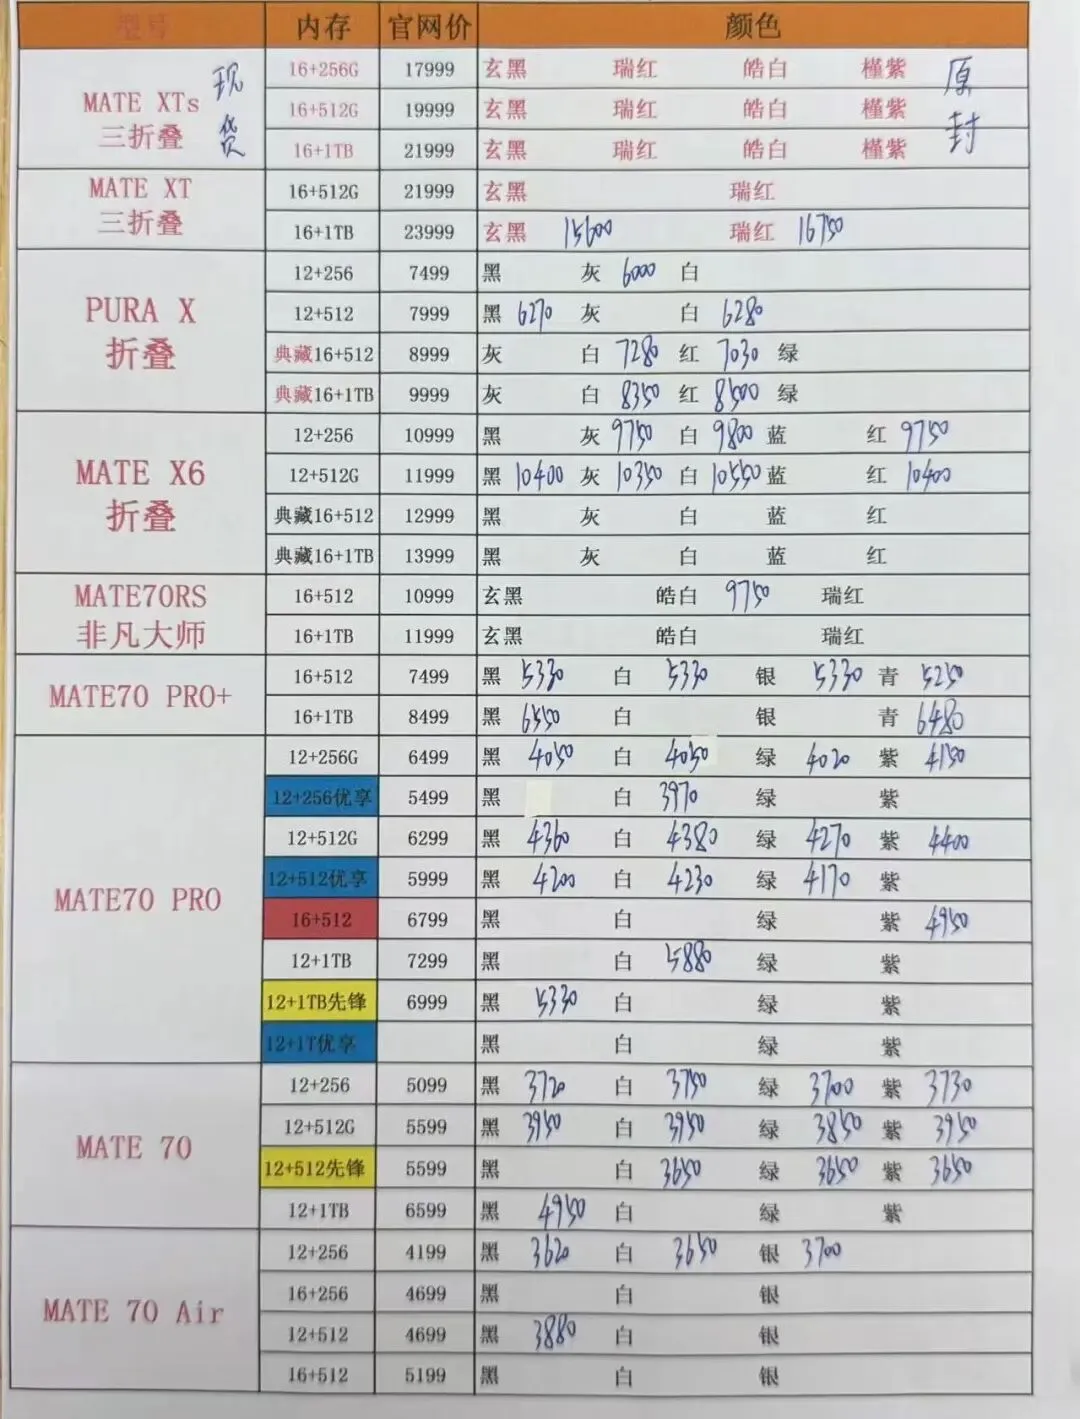 型号 内存 官网价 颜色
MATE XTs 三折叠 现货 16+256G 17999 玄黑 瑞红 皓白 槿紫 原封
16+512G 19999 玄黑 瑞红 皓白 槿紫
16+1TB 21999 玄黑 瑞红 皓白 槿紫
MATE XT 三折叠 16+512G 21999 玄黑 瑞红
16+1TB 23999 玄黑 15600 瑞红 16750
PURA X 折叠 12+256 7499 黑 灰 6000 白
12+512 7999 黑 6270 灰 白 6280
典藏16+512 8999 灰 白 7280 红 7030 绿
典藏16+1TB 9999 灰 白 8350 红 8500 绿
MATE X6 折叠 12+256 10999 黑 灰 9750 白 9800 蓝 红 9750
12+512G 11999 黑 10400 灰 10350 白 10550 蓝 红 10400
典藏16+512 12999 黑 灰 白 蓝 红
典藏16+1TB 13999 黑 灰 白 蓝 红
MATE70RS 非凡大师 16+512 10999 玄黑 皓白 9750 瑞红
16+1TB 11999 玄黑 皓白 瑞红
MATE70 PRO+ 16+512 7499 黑 5330 白 5330 银 5330 青 5250
16+1TB 8499 黑 6550 白 银 青 6480
MATE70 PRO 12+256G 6499 黑 4050 白 4050 绿 4020 紫 4150
12+256优享 5499 黑 白 3970 绿 紫
12+512G 6299 黑 4360 白 4380 绿 4270 紫 4400
12+512优享 5999 黑 4200 白 4230 绿 4170 紫
16+512 6799 黑 白 绿 紫 4950
12+1TB 7299 黑 白 5880 绿 紫
12+1TB先锋 6999 黑 5330 白 绿 紫
12+1T优享 黑 白 绿 紫
MATE 70 12+256 5099 黑 3720 白 3750 绿 3700 紫 3730
12+512G 5599 黑 3950 白 3950 绿 3850 紫 3950
12+512先锋 5599 黑 白 3650 绿 3650 紫 3650
12+1TB 6599 黑 4950 白 绿 紫
MATE 70 Air 12+256 4199 黑 3620 白 3650 银 3700
16+256 4699 黑 白 银
12+512 4699 黑 3880 白 银
16+512 5199 黑 白 银